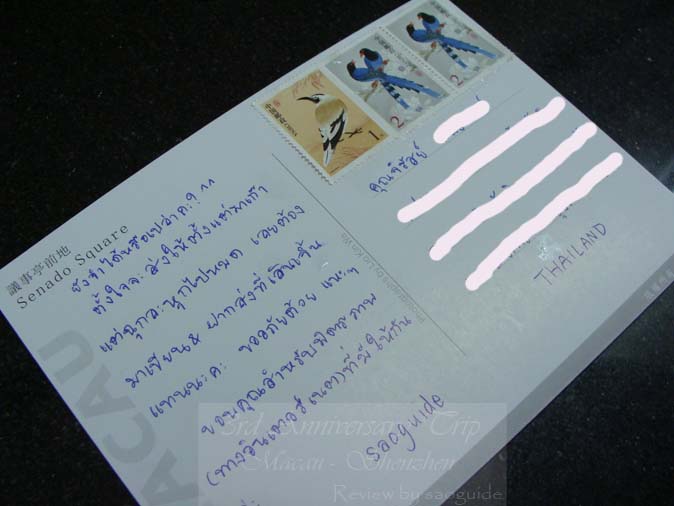 議事亭前地
Senado Square
MACAU
ยังจำได้หรือเปล่าคะ? ^^
ตั้งใจจะส่งให้ตั้งแต่มาเก๊า
แต่ฉุกละหุกไปหมด เลยต้อง
มาเขียน& ฝากส่งที่เสินเจิ้น
แทนนะคะ ขออภัยด้วย
ขอบคุณสำหรับมิตรภาพ
(ทางอินเตอร์เนต)ที่มีให้กัน
saoguide
中国邮政 CHINA
1
2
2
คุณ
THAILAND
3rd Anniversary Trip
Macau - Shenzhen
Review by saoguide